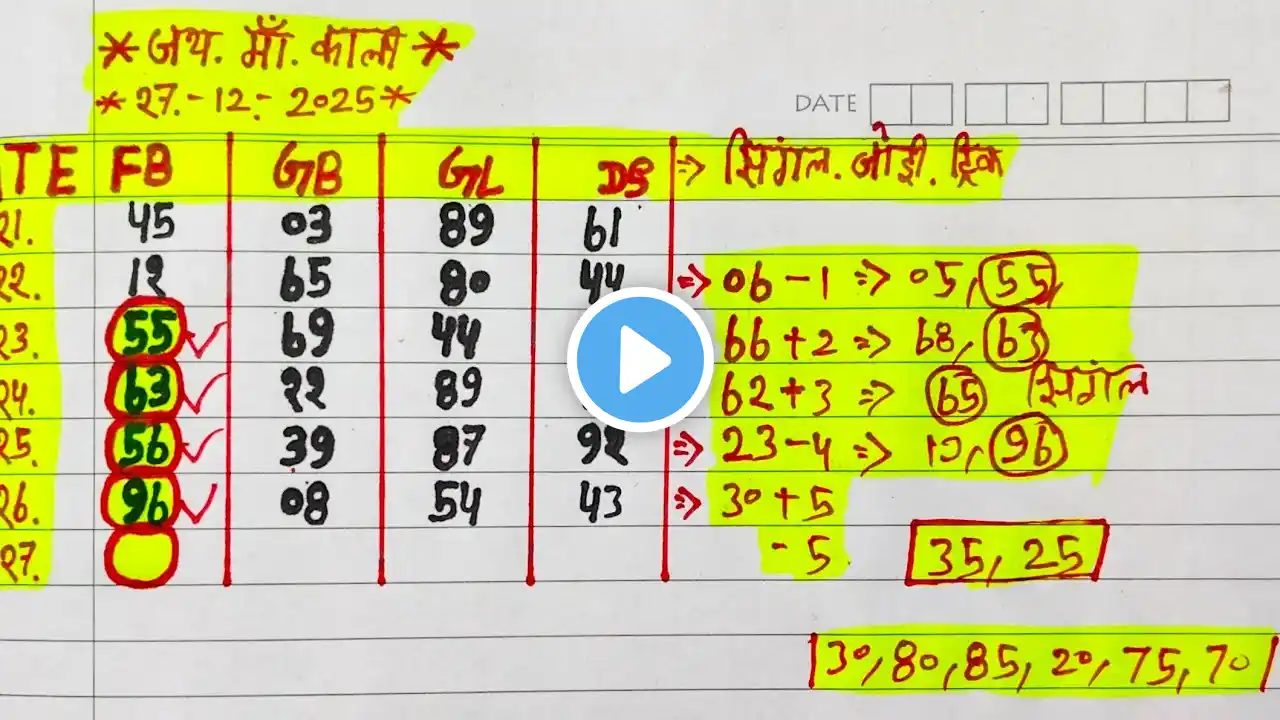 * जय. माँ. काली *
* 27.-12-: 2025 *
DATE
TE FB GB GL DS => सिंगल. जोड़ी. ट्रिक
21. 45 03 89 61
22. 12 65 80 44 => 06-1 => 05, 55,
23. 55 69 44 66+2 => 68, 63
24. 63 22 89 62+3 => 65 सिंगल
25. 56 39 87 92 => 23-4 => 19, 96
26. 96 08 54 43 => 30+5
27. -5 35, 25
30, 80, 85, 20, 75, 70